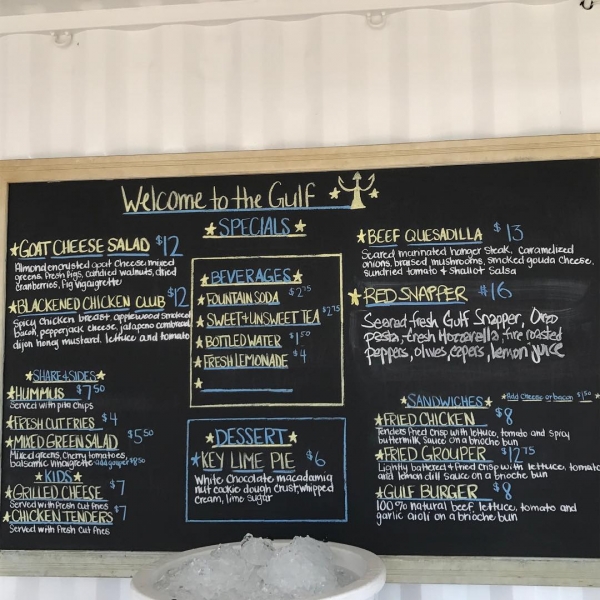 Welcome to the Gulf
SPECIALS
GOAT CHEESE SALAD $12
Almond encrusted goat cheese, mixed
greens, fresh figs, candied walnuts, dried
cranberries, fig vinaigrette
BLACKENED CHICKEN CLUB $12
Spicy chicken breast, applewood smoked
bacon, pepperjack cheese, jalapeno cornbread
dijon honey mustard, lettuce and tomato
SHARE & SIDES
HUMMUS $7.50
Served with pita chips
FRESH CUT FRIES $4
MIXED GREEN SALAD $5.50
Mixed greens, cherry tomatoes,
balsamic vinaigrette
KIDS
GRILLED CHEESE $7
Served with fresh cut fries
CHICKEN TENDERS $7
Served with fresh cut fries
BEVERAGES
FOUNTAIN SODA $2.75
SWEET & UNSWEET TEA $2.75
BOTTLED WATER $1.50
FRESH LEMONADE $4
DESSERT
KEY LIME PIE $6
White chocolate, macadamia
nut cookie dough crust, whipped
cream, lime sugar
BEEF QUESADILLA $13
Seared marinated hanger steak, caramelized
onions, braised mushrooms, smoked gouda cheese,
sundried tomato & shallot salsa
RED SNAPPER $16
Seared fresh Gulf Snapper, Orzo
pasta, fresh mozzarella, fire roasted
peppers, olives, capers, lemon juice
SANDWICHES Add cheese or bacon $1.50
FRIED CHICKEN $8
Tenders fried crisp with lettuce, tomato and spicy
buttermilk sauce on a brioche bun
FRIED GROUPER $12.75
Lightly battered & fried crisp with lettuce, tomato
and lemon dill sauce on a brioche bun
GULF BURGER $8
100% natural beef, lettuce, tomato and
garlic aioli on a brioche bun